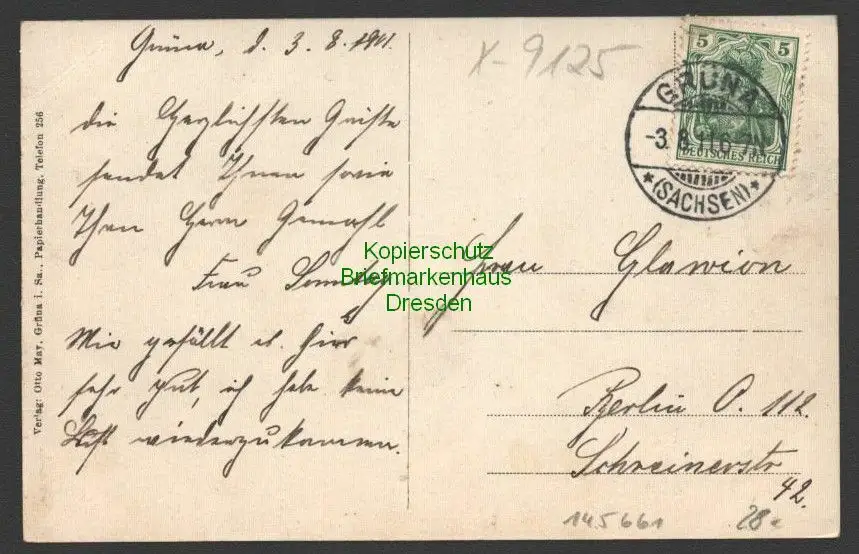 Grüna, d. 3. 8. 1911.
die Herzlichsten Grüße
sendet Ihnen sowie
Ihren Herrn Gemahl
Frau
Mir gefällt es hier
sehr gut, ich habe keine
Lust wiederzukommen.
Verlag: Otto May, Grüna i. Sa., Papierhandlung, Telefon 256
X-9125
5 5
DEUTSCHES REICH
GRÜNA
-3.8.11.6-7N
*(SACHSEN)*
Kopierschutz
Briefmarkenhaus
Dresden
Frau Glawion
Berlin O. 112.
Schreinerstr
42.
145661
28e